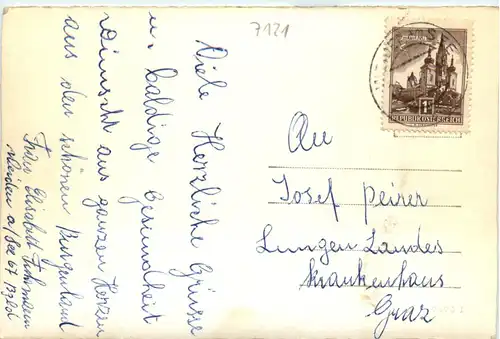 7121
Viele Herzliche Grüsse
u. baldige Gesundheit
Wünscht aus ganzen Herzen
aus den schönen Burgenland
Frau Elisabeth
a/See 67 Bgld
REPUBLIK ÖSTERREICH
An
Josef Peirer
Lungen Landes
Krankenhaus
Graz